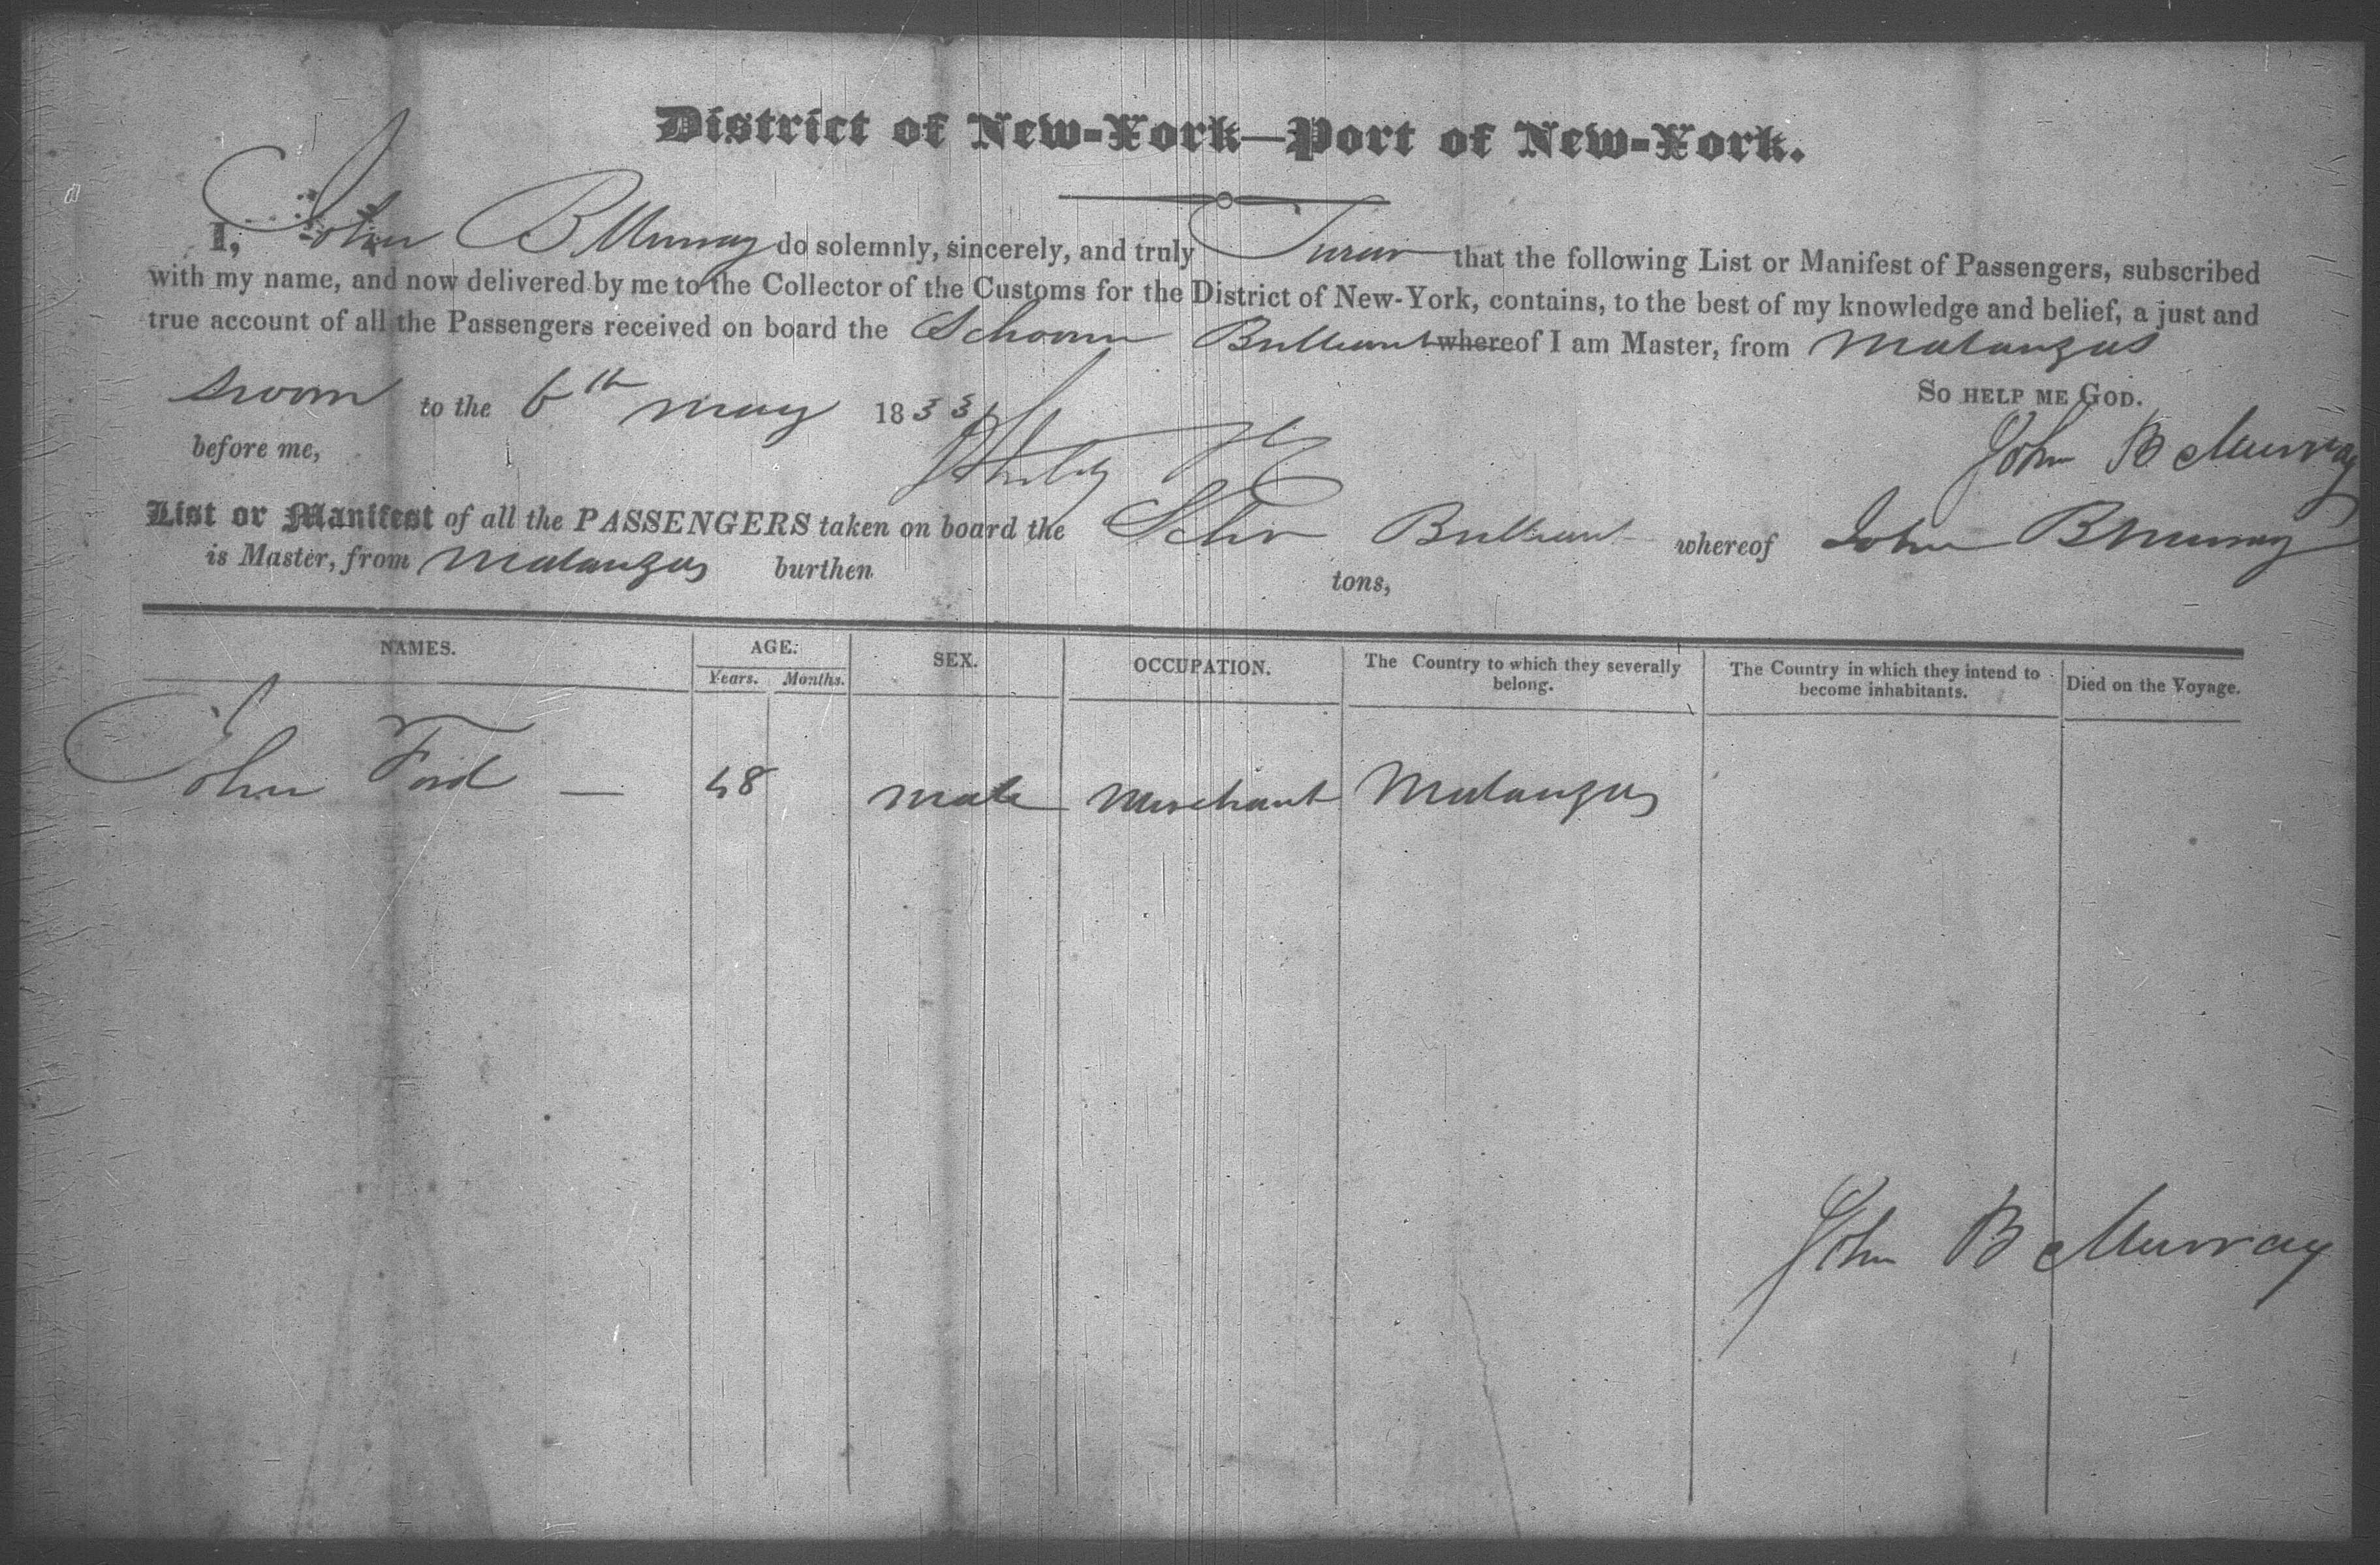 District of New-York—Port of New-York.
I, John B Murray do solemnly, sincerely, and truly Swear that the following List or Manifest of Passengers, subscribed
with my name, and now delivered by me to the Collector of the Customs for the District of New-York, contains, to the best of my knowledge and belief, a just and
true account of all the Passengers received on board the Schooner Brilliant whereof I am Master, from Matanzas
Sworn to the 6th May 1833
So help me God.
before me,
John B Murray
List or Manifest of all the PASSENGERS taken on board the Schr Brilliant whereof John B Murray
is Master, from Matanzas burthen tons,
NAMES. AGE. SEX. OCCUPATION. The Country to which they severally belong. The Country in which they intend to become inhabitants. Died on the Voyage.
Years. Months.
John Ford — 48 male Merchant Matanzas
John B Murray